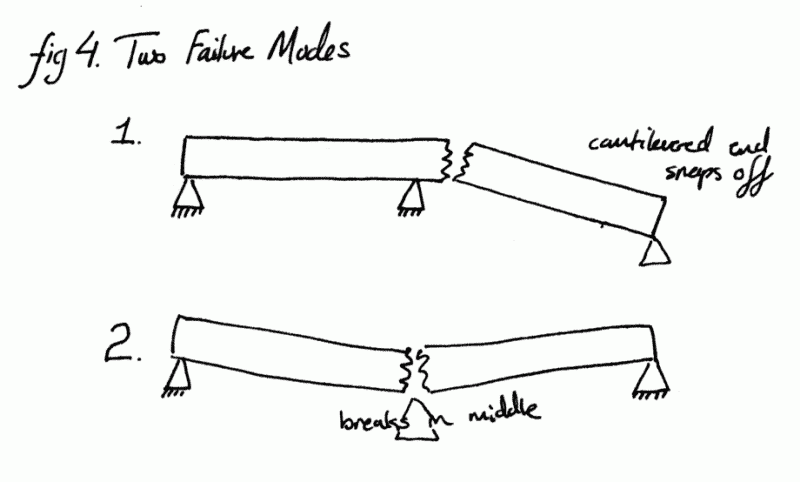 fig 4. Two Failure Modes
1.
cantilevered end
snaps off
2.
breaks in middle